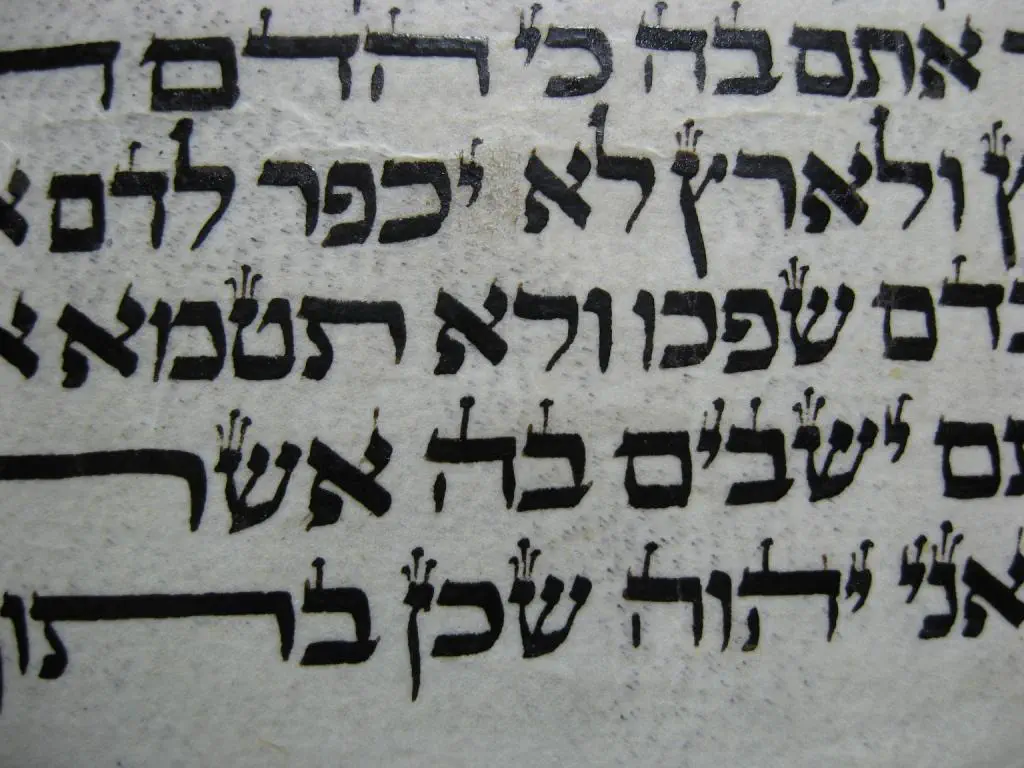 אתם בה כי הדם
ולארץ לא יכפר לדם
בדם שפכו ולא תטמא
ישבים בה אשר
אני יהוה שכן בתוך